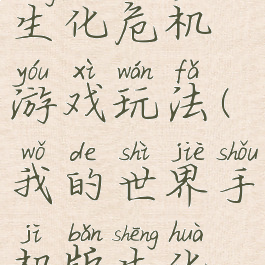 生化危机
yóu xì wán fǎ
游戏玩法(
wǒ de shì jiè shǒu
我的世界手
jī bǎn shēng huà
机版生化